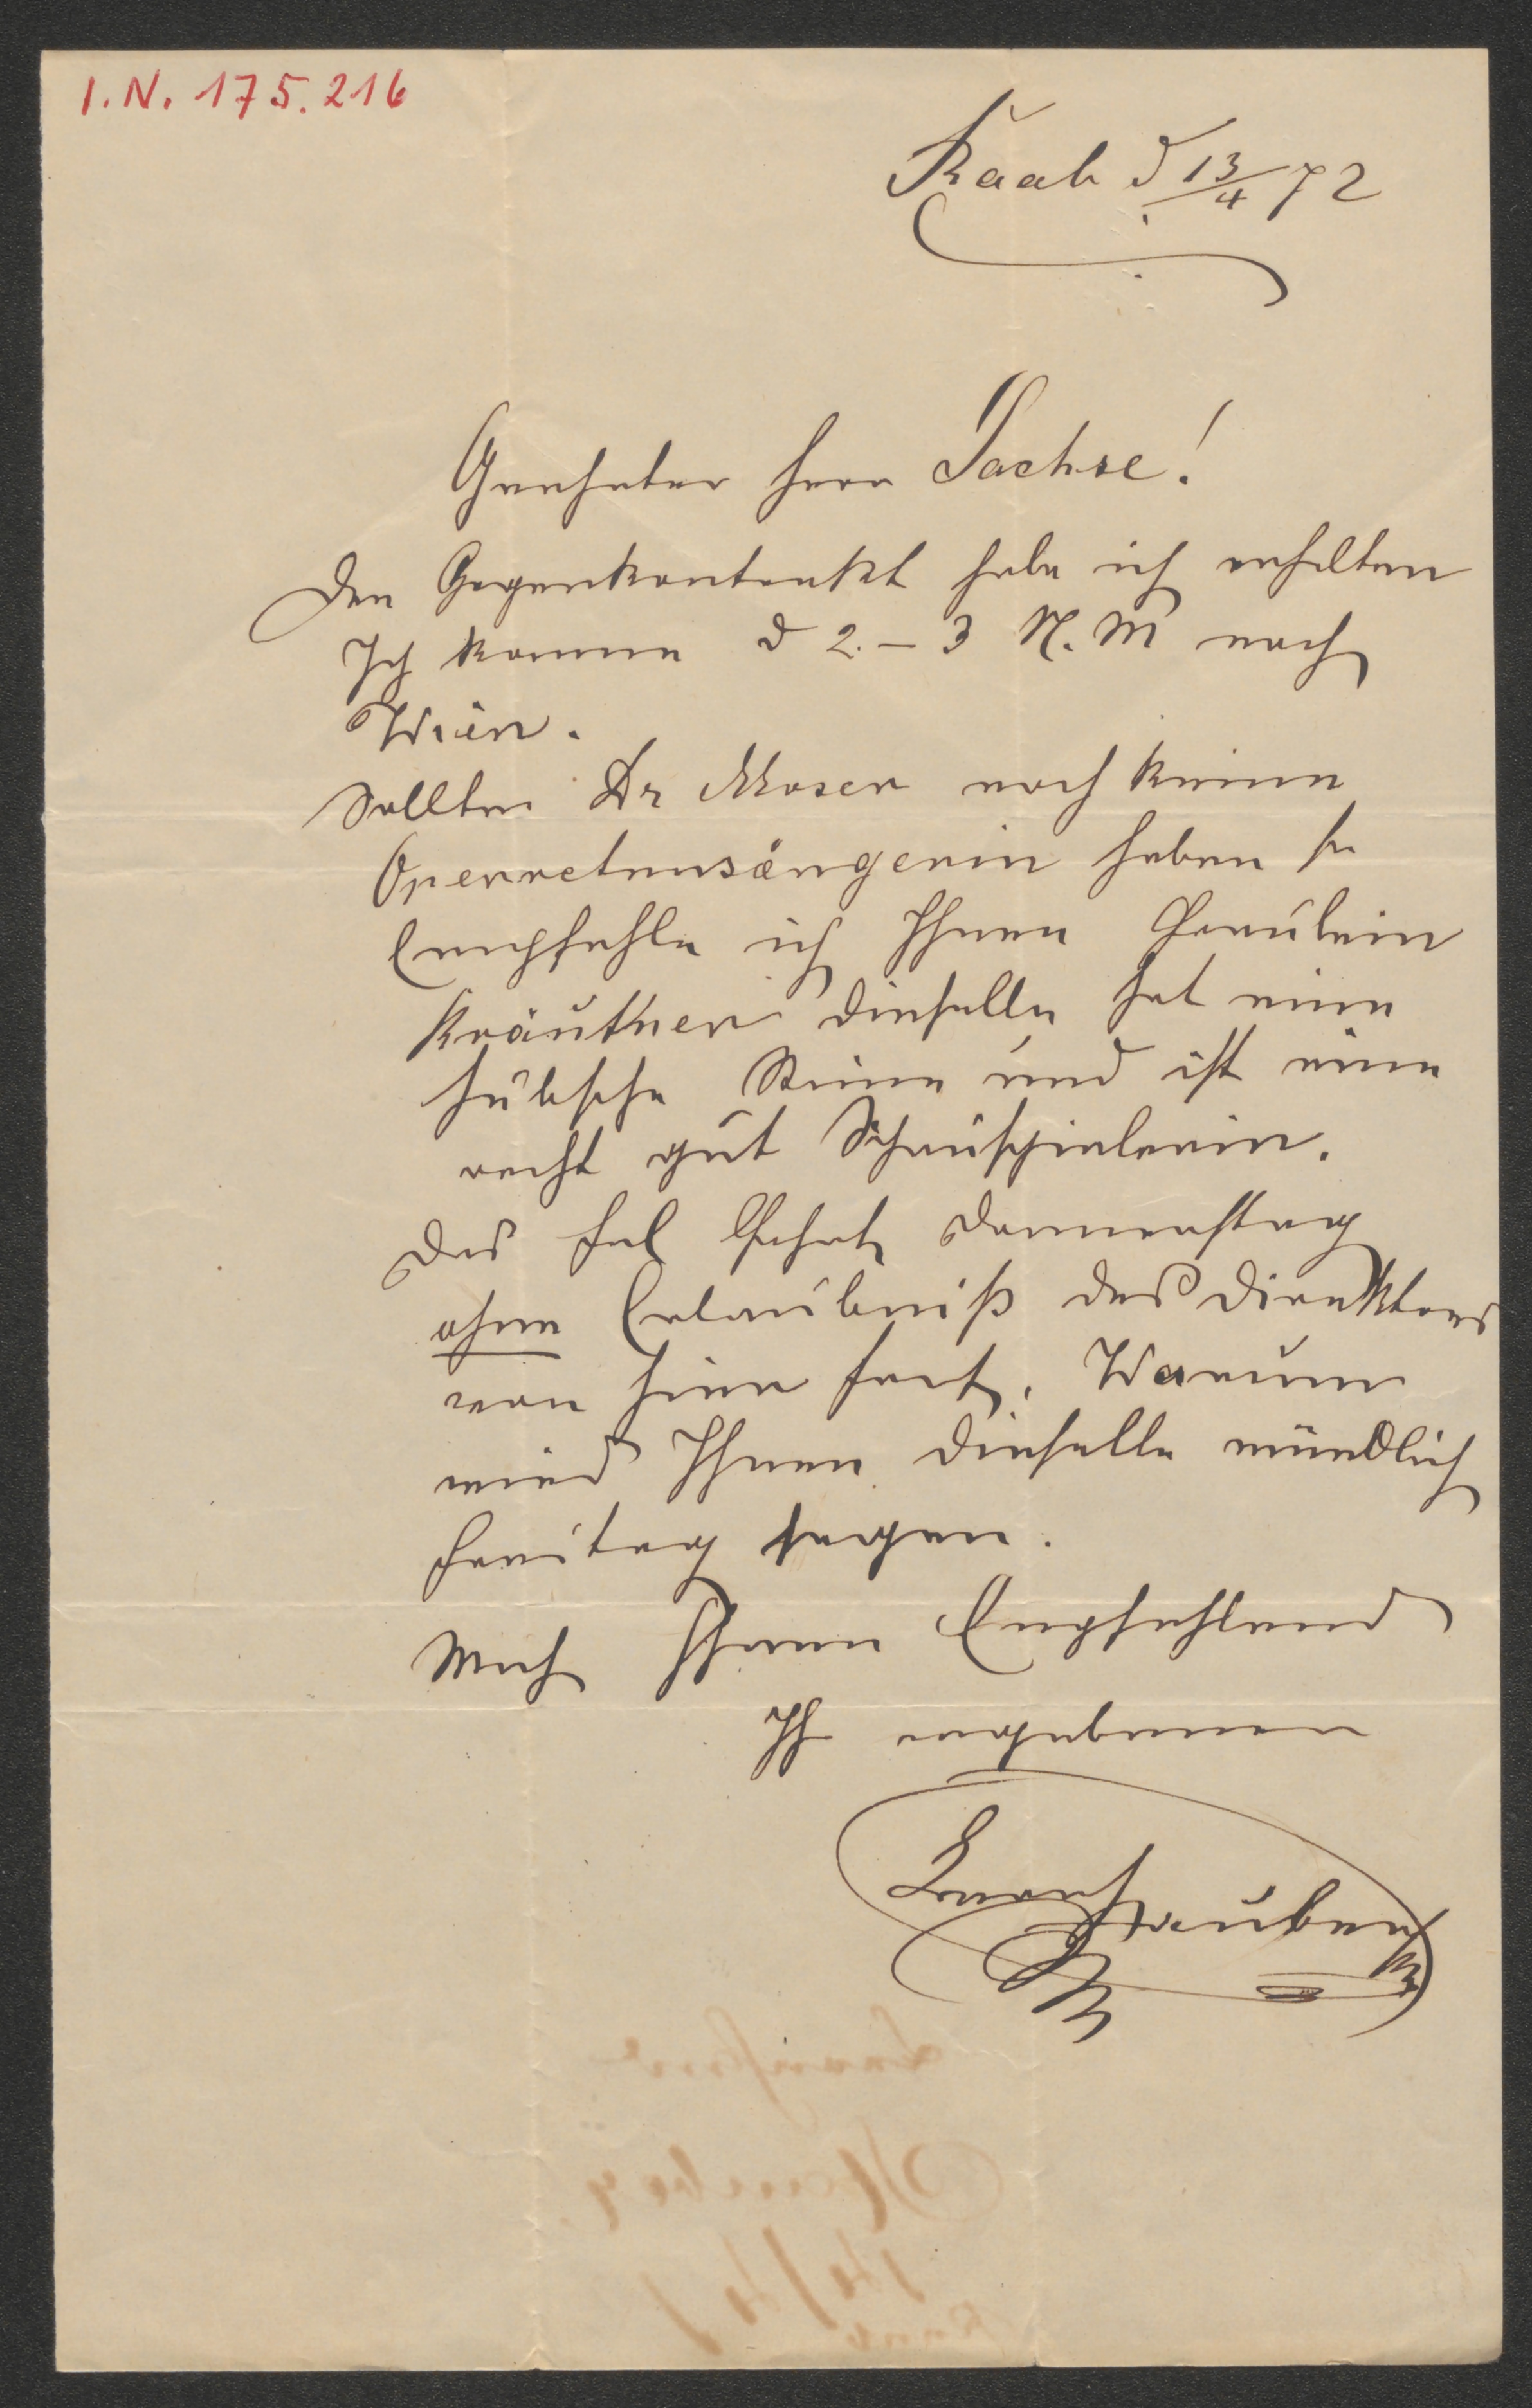 I.N. 175.216
Raab d 13/4 72
Geehrter Herr Sachse!
Den Gegenkontrakt habe ich erhalten
Ich komme d 2.–3 N.M nach
Wien.
Sollten Dr Moser noch keine
Operretensängerin haben so
Empfehle ich Ihnen Fräulein
Kräuthner dieselbe hat eine
hübsche Stime und ist eine
recht gut Schauspielerin.
Das Frl fährt Donnerstag
ohne Erlaubniß des Direktors
von hier fort. Warum
wird Ihnen dieselbe mündlich
Freitag sagen.
Mich Ihnen Empfehlend
Ihr ergebener
Ernst